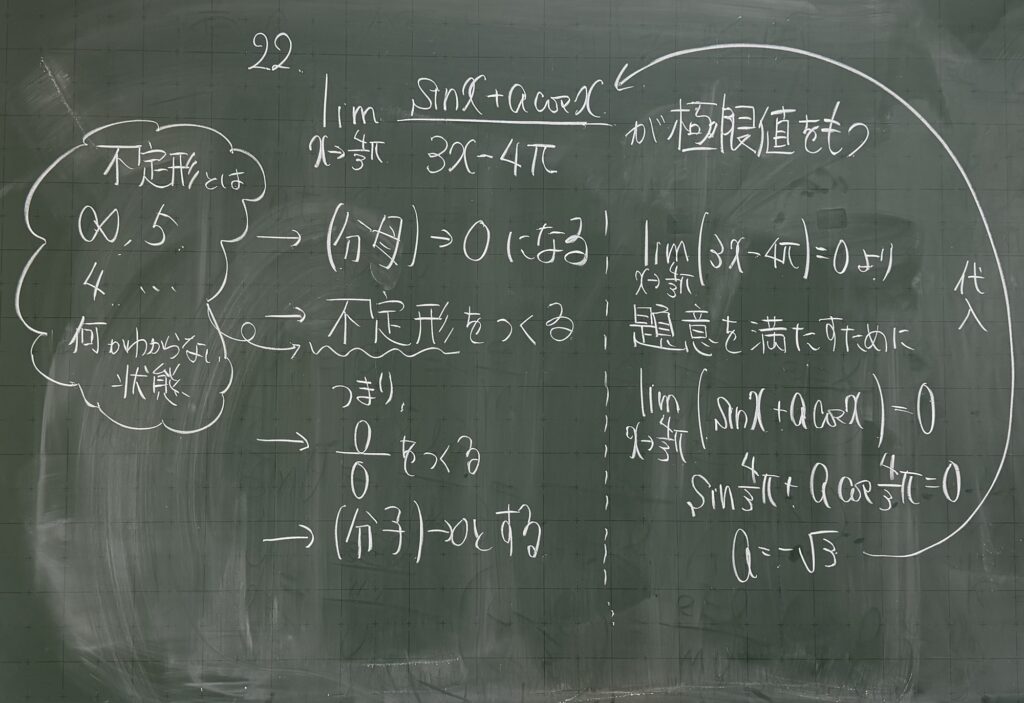 22.
lim x→4/3π (sinx+acosx)/(3x-4π) が極限値をもつ
不定形とは
∞, 5
4 …
何かわからない
状態
→ (分母)→0になる
→ 不定形をつくる
つまり,
→ 0/0をつくる
→ (分子)→0とする
lim x→4/3π (3x-4π)=0より
題意を満たすために
lim x→4/3π (sinx+acosx)=0
sin4/3π+acos4/3π=0
a=-√3
代入